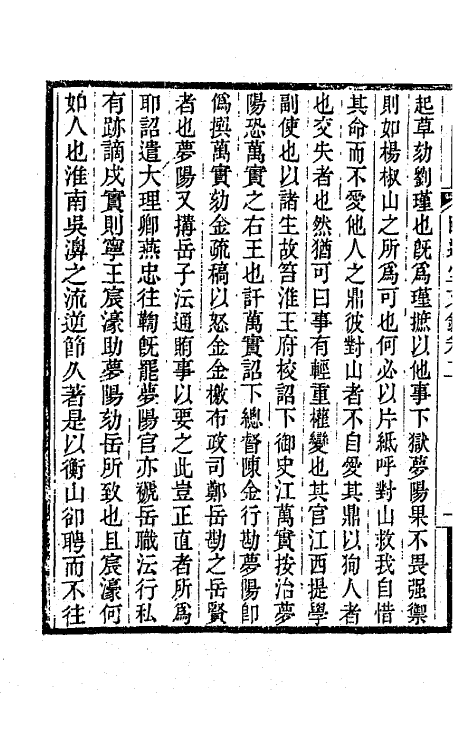 起草劾劉瑾也旣爲瑾摭以他事下獄夢陽果不畏强禦
則如楊椒山之所爲可也何必以片紙呼對山救我自惜
其命而不愛他人之鼎彼對山者不自愛其鼎以狥人者
也交失者也然猶可曰事有輕重權變也其官江西提學
副使也以諸生故笞淮王府校詔下御史江萬實按治夢
陽恐萬實之右王也訐萬實詔下總督陳金行勘夢陽卽
僞撰萬實劾金疏稿以怒金金檄布政司鄭岳勘之岳賢
者也夢陽又搆岳子沄通賄事以要之此豈正直者所爲
耶詔遣大理卿燕忠往鞫旣罷夢陽官亦褫岳職沄行私
有跡謫戍實則寧王宸濠助夢陽劾岳所致也且宸濠何
如人也淮南吳濞之流逆節久著是以衡山卻聘而不往